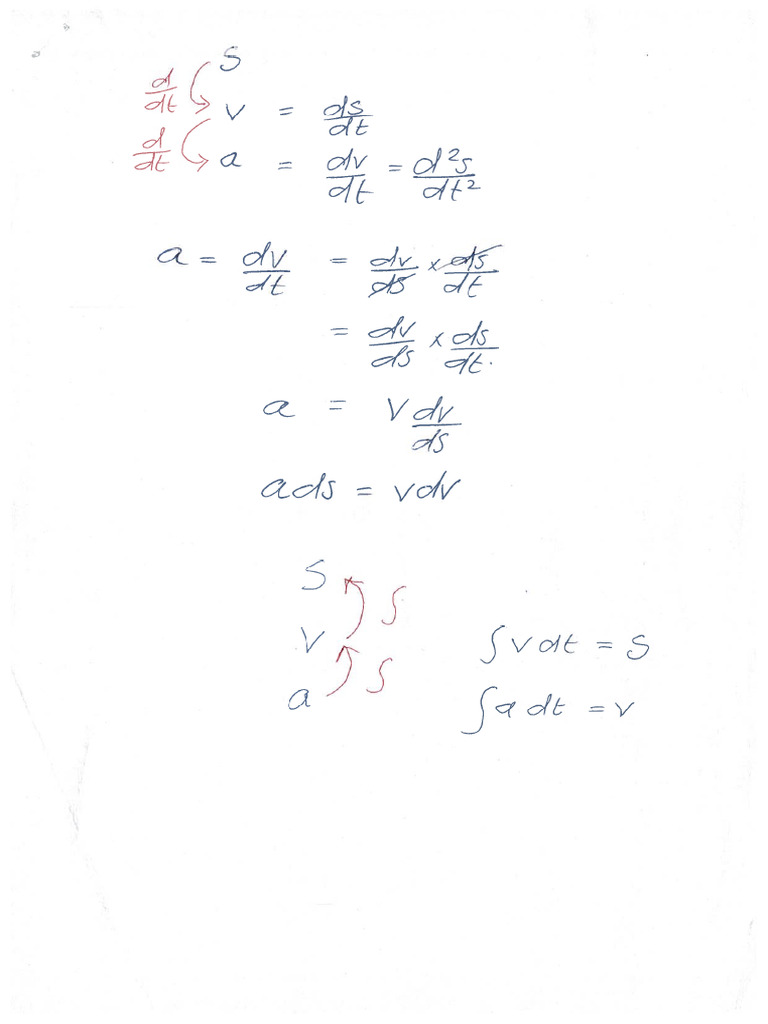 s
d/dt v = ds/dt
d/dt a = dv/dt = d²s/dt²
a = dv/dt = dv/ds × ds/dt
= dv/ds × ds/dt.
a = v dv/ds
a ds = v dv
s
∫
v ∫v dt = s
∫
a ∫a dt = v